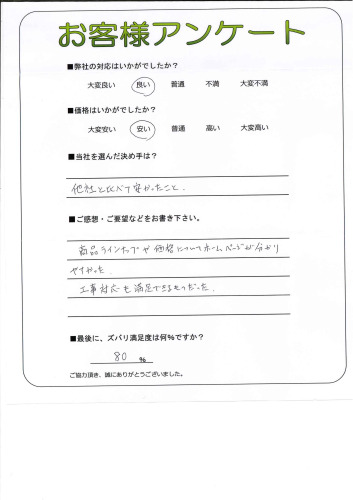 お客様アンケート
■弊社の対応はいかがでしたか？
大変良い 良い 普通 不満 大変不満
■価格はいかがでしたか？
大変安い 安い 普通 高い 大変高い
■当社を選んだ決め手は？
他社と比べて安かったこと。
■ご感想・ご要望などをお書き下さい。
商品ラインナップや価格についてホームページが分かり
やすかった。
工事対応も満足できるものだった。
■最後に、ズバリ満足度は何％ですか？
80 ％
ご協力頂き、誠にありがとうございました。